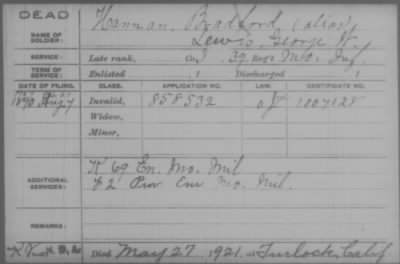 DEAD
NAME OF SOLDIER:
Hannan, Bradford, (alias)
Lewis, George W.
SERVICE:
Late rank, Co. I, 39 Reg't Mo. Inf.
TERM OF SERVICE:
Enlisted , 1 Discharged , 1
DATE OF FILING. CLASS. APPLICATION NO. LAW. CERTIFICATE NO.
1890 Aug 7 Invalid, 858532 1007128
Widow,
Minor,
ADDITIONAL SERVICES:
K 69 En. Mo. Mil
K 2 Prov Enr Mo. Mil.
REMARKS:
Died May 27, 1921, at Turlock, Calif